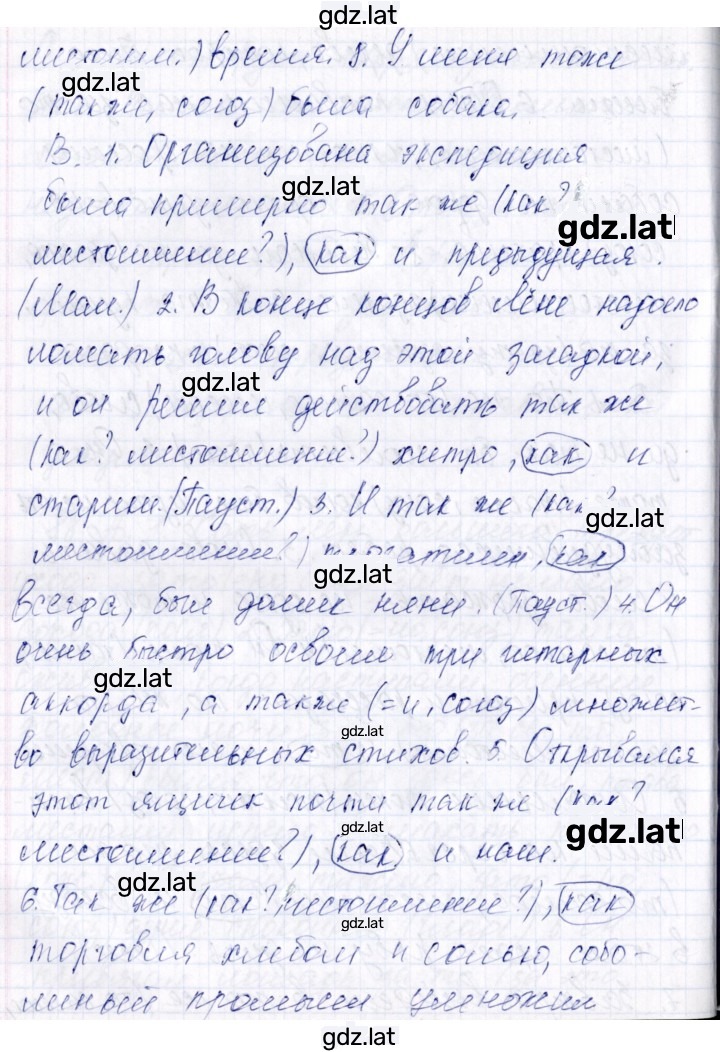 gdz.lat
местоим.) время. 8. У меня тоже
gdz.lat
(также, союз) была собака.
В. 1. Организована экспедиция
gdz.lat
была примерно так же (как?
gdz.lat
местоимение?), как и предыдущая.
(Мам.) 2. В конце концов Лёне надоело
ломать голову над этой загадкой,
gdz.lat
и он решил действовать так же
(как? местоимение?) хитро, как и
старики. (Пауст.) 3. И так же (как?
gdz.lat
местоимение?) как
gdz.lat
всегда, был домик няни. (Пауст.) 4. Он
очень быстро освоил три гитарных
gdz.lat
аккорда, а также (= и, союз) множест-
gdz.lat
во выразительных стихов. 5. Открывался
этот ящичек почти так же (как?
gdz.lat
gdz.lat
местоимение?), как и наш.
gdz.lat
6. Так же (как? местоимение?), как
gdz.lat
торговля хлебом и солью, собо-
линый промысел умножил
gdz.lat